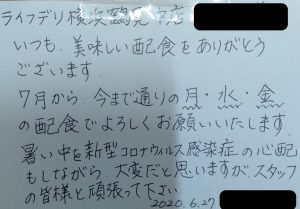 ライフデリ横浜鶴見中店
いつも、美味しい配食をありがとう
ございます
7月から、今まで通りの月・水・金
の配食でよろしくお願いいたします
暑い中を新型コロナウィルス感染症の心配
もしながら、大変だと思いますが、スタッフ
の皆様と頑張って下さい。
2020.6.27